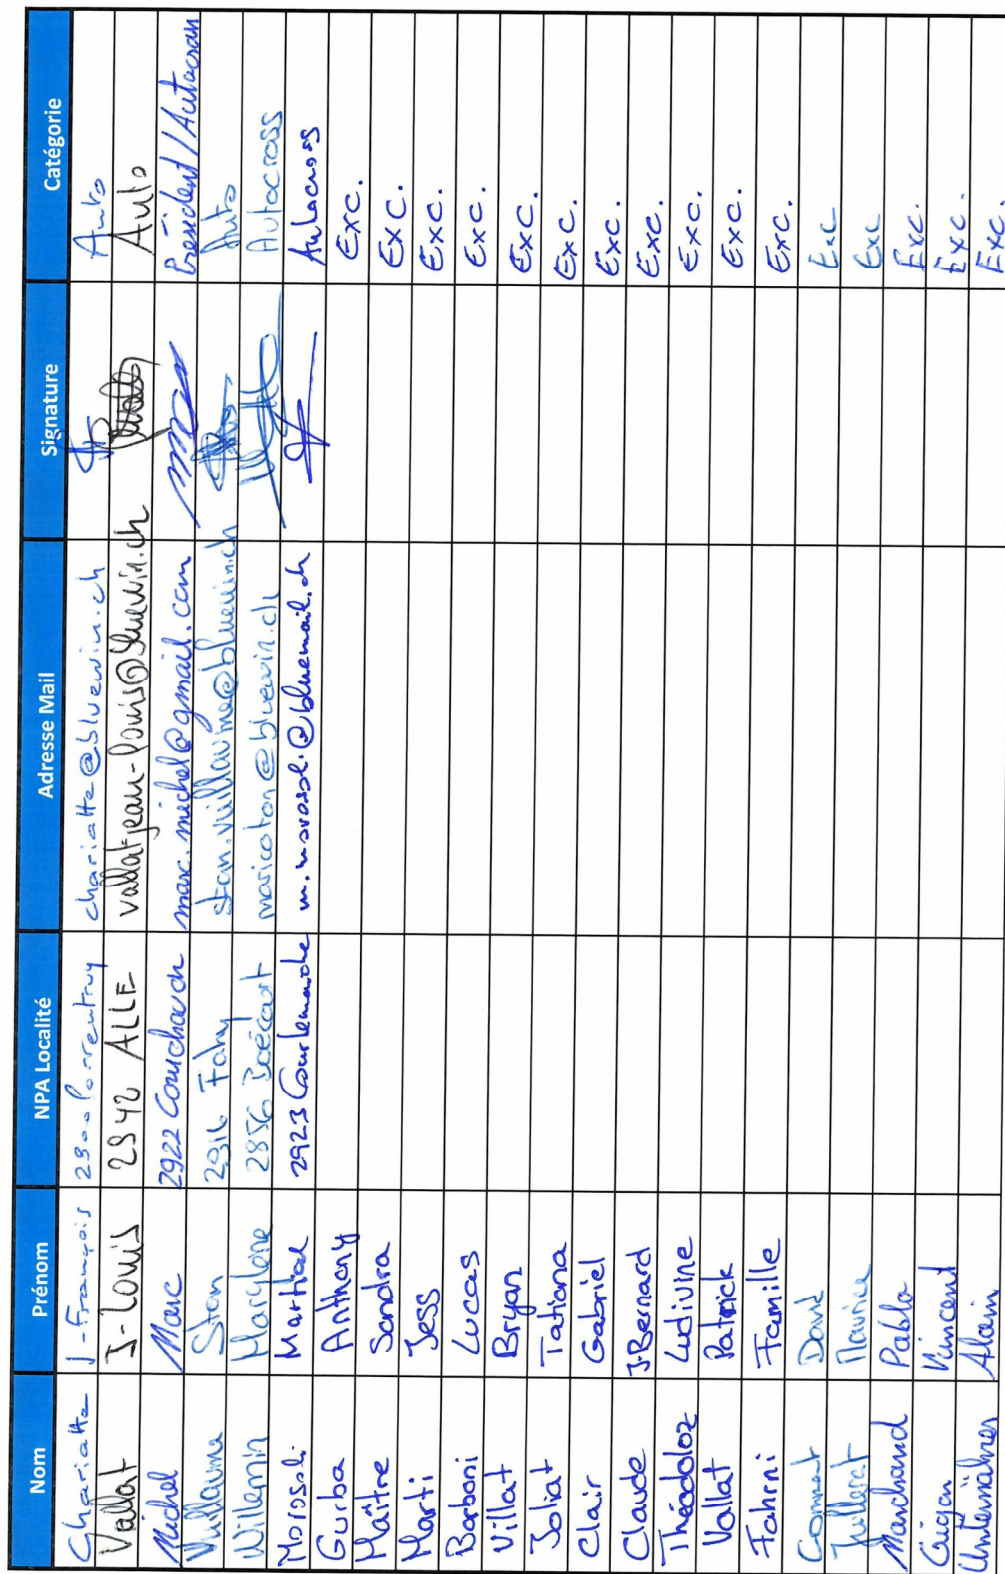 Nom Prénom NPA Localité Adresse Mail Signature Catégorie
Chariatte J-François 2900 Porrentruy chariatte@bluewin.ch Auto
Vallat J-Louis 2942 ALLE vallatjean-louis@bluewin.ch Auto
Michel Marc 2922 Courchavon marc.michel@gmail.com Président/Autocross
Vuillaume Stan 2916 Fahy stan.vuillaume@bluewin.ch Auto
Willemin Marylène 2856 Boécourt maricoton@bluewin.ch Autocross
Morosoli Martial 2923 Courtemaîche m.morosoli@bluemail.ch Autocross
Gurba Anthony Exc.
Maître Sandra Exc.
Marti Jess Exc.
Barboni Lucas Exc.
Villat Bryan Exc.
Joliat Tatiana Exc.
Clair Gabriel Exc.
Claude J-Bernard Exc.
Théodoloz Ludivine Exc.
Vallat Patrick Exc.
Fahrni Famille Exc.
Comment David Exc
Juillerat Maurice Exc
Marchand Pablo Exc.
Vincent Exc.
Unternährer Alain Exc.